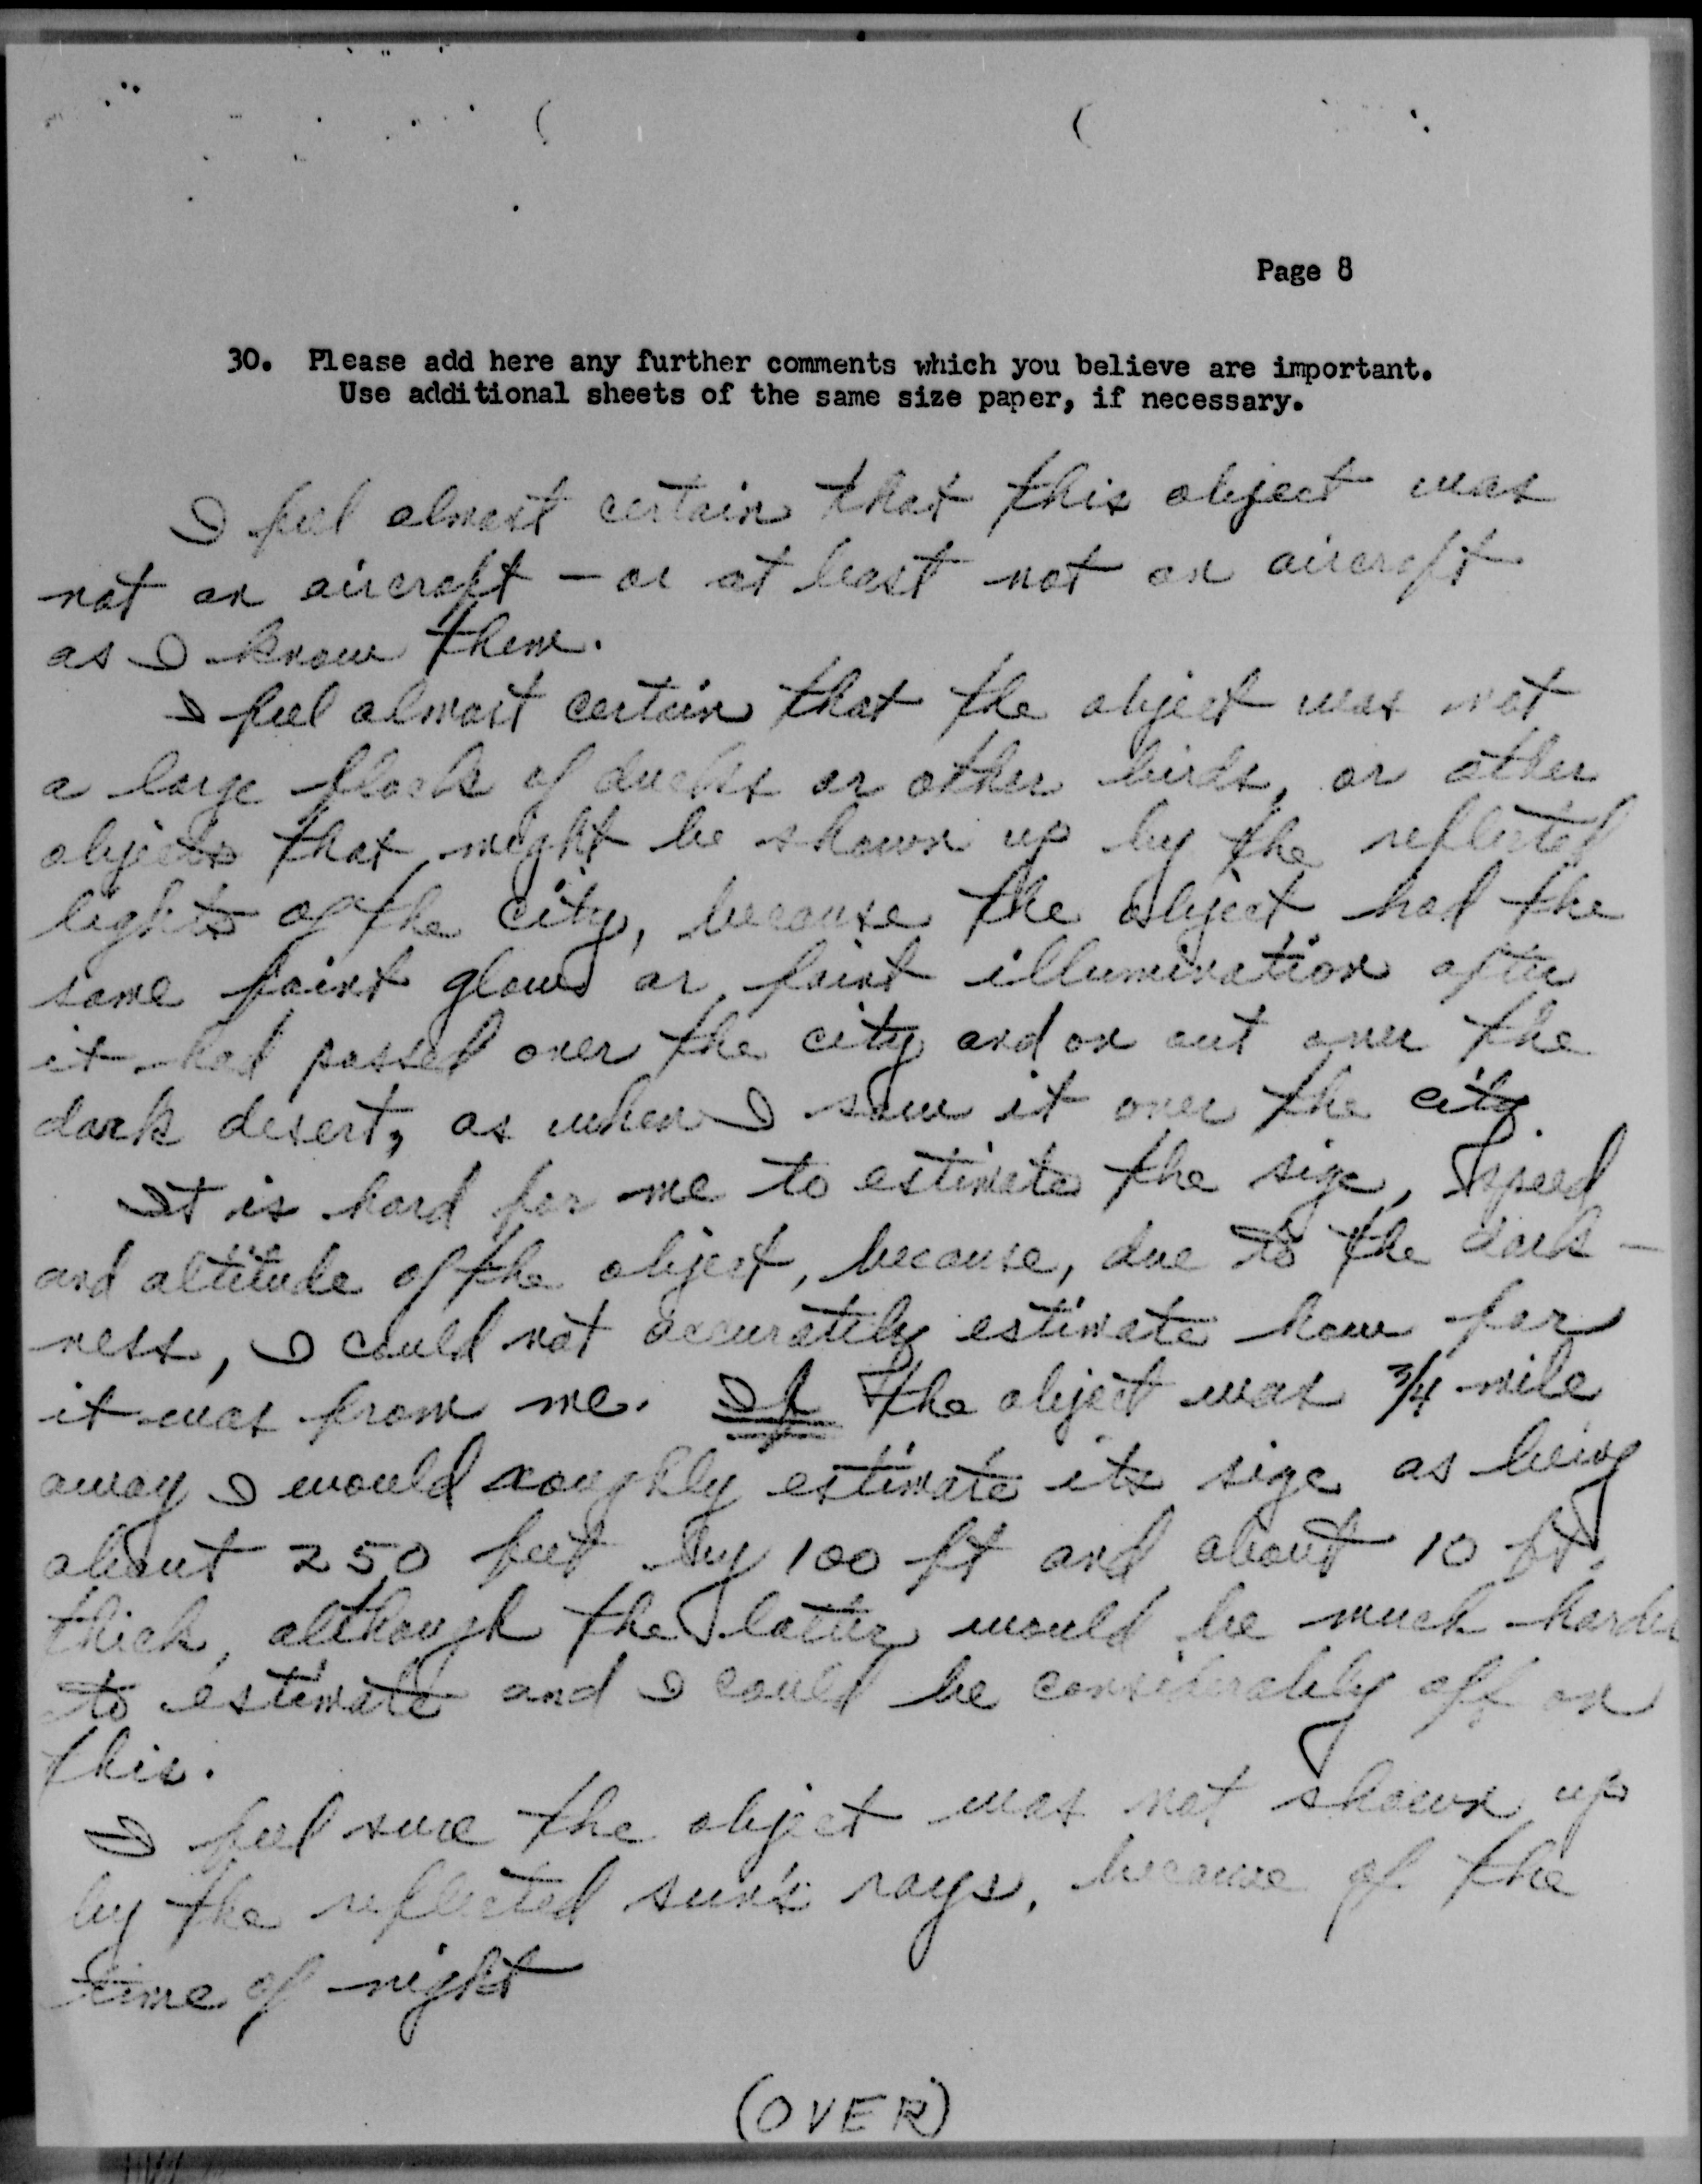 Page 8
30. Please add here any further comments which you believe are important.
Use additional sheets of the same size paper, if necessary.
I feel almost certain that this object was
not an aircraft - or at least not an aircraft
as I know them.
I feel almost certain that the object was not
a large flock of ducks or other birds, or other
objects that might be shown up by the reflected
lights of the city, because the object had the
same faint glow or faint illumination after
it had passed over the city and on out over the
dark desert, as when I saw it over the city.
It is hard for me to estimate the size, speed
and altitude of the object, because, due to the dark-
ness, I could not accurately estimate how far
it was from me. If the object was 3/4 mile
away I would roughly estimate its size as being
about 250 feet by 100 ft and about 10 ft.
thick, although the latter would be much harder
to estimate and I could be considerably off on
this.
I feel sure the object was not shown up
by the reflected sun's rays, because of the
time of night
(OVER)